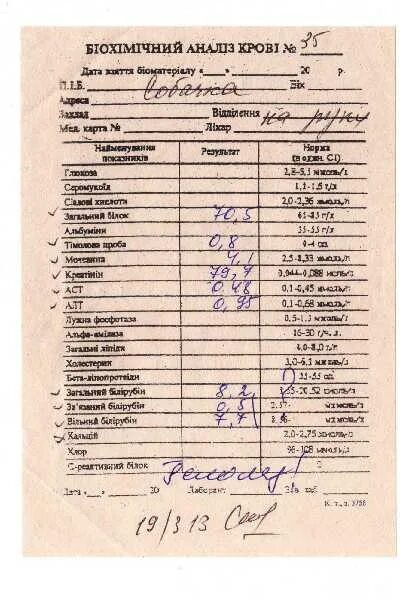 БІОХІМІЧНИЙ АНАЛІЗ КРОВІ № 35
Дата взяття біоматеріалу «___»__________ 20___ р.
П.І.Б. Собачка Вік
Адреса
Заклад Відділення на руки
Мед. карта № Лікар
Найменування показників Результат Норма (в один. СІ)
Глюкоза 2,8-5,5 ммоль/л
Серомукоїд
Сіалові кислоти 2,0-2,36 ммоль/л
Загальний білок 70,5 65-85 г/л
Альбуміни 35-55 г/л
Тімолова проба 0,8 0-4 од.
Мочевина 4,1 2,5-8,33 ммоль/л
Креатінін 79,7 0,044-0,088 ммоль/л
АСТ 0,48 0,1-0,45 ммоль/л
АЛТ 0,95 0,1-0,68 ммоль/л
Лужна фосфотаза 0,5-1,3 ммоль/л
Альфа-амілаза 16-30 г/ч. л.
Загальні ліпіди 4,0-8,0 г/л
Холестерин ммоль/л
Бета-ліпопротеїди 35-55 од.
Загальний білірубін 8,2
Зв'язаний білірубін 0,5 2.57-
Вільний білірубін 7,7 8.56-
Кальцій 2,0-2,75 ммоль/л
Хлор 96-108 ммоль/л
С-реактивний білок 0
Дата «___» 20 Лаборант Зав. лаб.
19/3 13